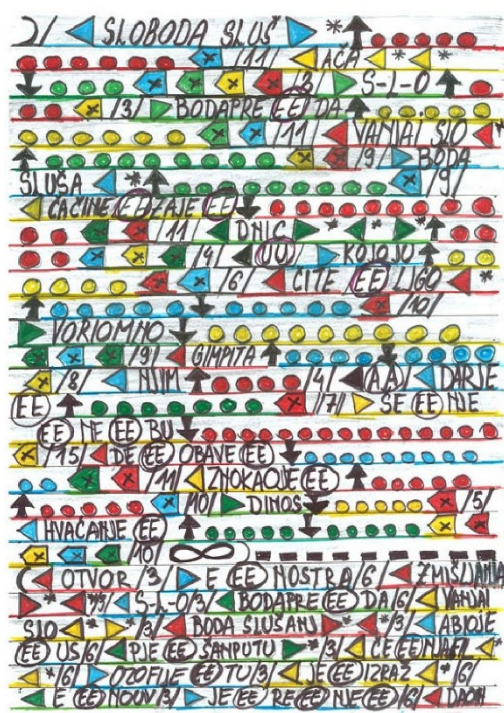 2/ SLOBODA SLUŠ *
/11/ AČA * *
/8/ S-L-O
/3/ BODAPRE EE DA
/11/ VANJAI SLO
/9/ BODA
SLUŠA * /9/
ČAČINE EE ZAJE EE
/11/ DNIC * *
/4/ UU KOJOJO
/6/ ČITE EE LIGO *
/10/
VORIOMNO
/9/ GIMPITA
/8/ NUM /4/ AA DARJE
EE /7/ SE EE NJE
EE NE EE BU
/15/ DE EE OBAVE EE
/11/ ZNOKAOJE EE
/10/ DINOS /5/
HVAĆANJE EE
/10/
OTVOR /3/ E EE NOSTRA /6/ ZMIŠLJANJA
* * /3/ S-L-O /3/ BODAPRE EE DA /6/ VANJAI
SLO * /3/ BODA SLUŠANJ * /3/ ABJOJE
EE US /6/ PJE EE ŠANPUTU * /3/ ČE EE NJAEZ *
* /6/ OZOFIJE EE TU /3/ JE EE IZRAZ * /6/
E EE NOUN /3/ JE EE RE EE NJE EE /6/ DAON